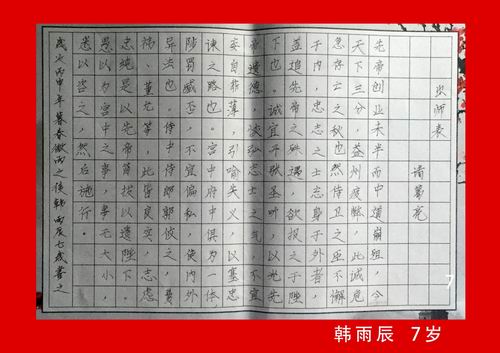 出师表
诸葛亮
先帝创业未半中道崩殂，今
天下三分，益州疲弊，此诚危
急存亡之秋也。然侍卫之臣不懈
于内，忠志之士忘身于外者，
盖追先帝之殊遇，欲报之于陛
下也。诚宜开张圣听，以光先
帝遗德，恢弘志士之气，不宜
妄自菲薄，引喻失义，以塞忠
谏之路也。宫中府中俱为一体，
陟罚臧否。不宜偏私，使内外
异法也。侍中侍郎郭攸之、费
祎、董允等，此皆良实，志虑
忠纯，是以先帝简拔以遗陛下。
愚以为宫中之事，事无大小，
悉以咨之，然后施行。
岁次丙申年暮春微雨之後韩雨辰七岁书之
7
韩雨辰 7岁